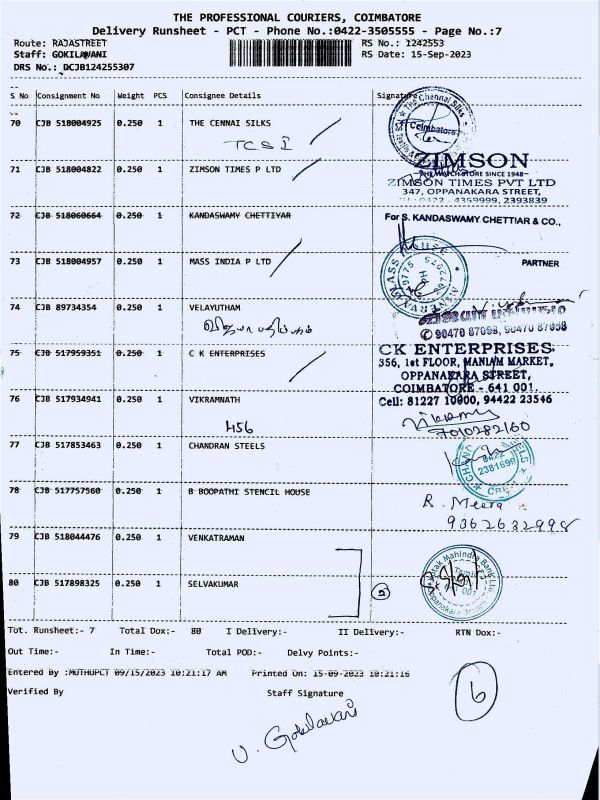 THE PROFESSIONAL COURIERS, COIMBATORE
Delivery Runsheet - PCT - Phone No.:0422-3505555 - Page No.:7
Route: RAJASTREET RS No.: 1242553
Staff: GOKILAVANI RS Date: 15-Sep-2023
DRS No.: DCJB124255307
S No Consignment No Weight PCS Consignee Details Signature
70 CJB 518004925 0.250 1 THE CENNAI SILKS
The Chennai Silks
Coimbatore
TCS I
71 CJB 518004822 0.250 1 ZIMSON TIMES P LTD
ZIMSON
THE WATCH STORE SINCE 1948
ZIMSON TIMES PVT LTD
347, OPPANAKARA STREET,
4359999, 2393839
72 CJB 518060664 0.250 1 KANDASWAMY CHETTIYAR
For S. KANDASWAMY CHETTIAR & CO.,
PARTNER
73 CJB 518004957 0.250 1 MASS INDIA P LTD
GLASS HOUSE
74 CJB 89734354 0.250 1 VELAYUTHAM
விஜயா பதிப்பகம்
விஜயா பதிப்பகம்
90470 87053, 90470 87058
75 CJB 517959351 0.250 1 C K ENTERPRISES
CK ENTERPRISES,
356, 1st FLOOR, MANIAM MARKET,
OPPANAKARA STREET,
COIMBATORE - 641 001.
Cell: 81227 10000, 94422 23546
76 CJB 517934941 0.250 1 VIKRAMNATH
456
7010282160
77 CJB 517853463 0.250 1 CHANDRAN STEELS
0422
2381699
78 CJB 517757560 0.250 1 B BOOPATHI STENCIL HOUSE
R. Meera
9362632998
79 CJB 518044476 0.250 1 VENKATRAMAN
80 CJB 517898325 0.250 1 SELVAKUMAR
Kotak Mahindra Bank Ltd
Oppanakara Street
Tot. Runsheet:- 7 Total Dox:- 80 I Delivery:- II Delivery:- RTN Dox:-
Out Time:- In Time:- Total POD:- Delvy Points:-
Entered By :MUTHUPCT 09/15/2023 10:21:17 AM Printed On: 15-09-2023 10:21:16
Verified By Staff Signature
6
V. Gokilavani